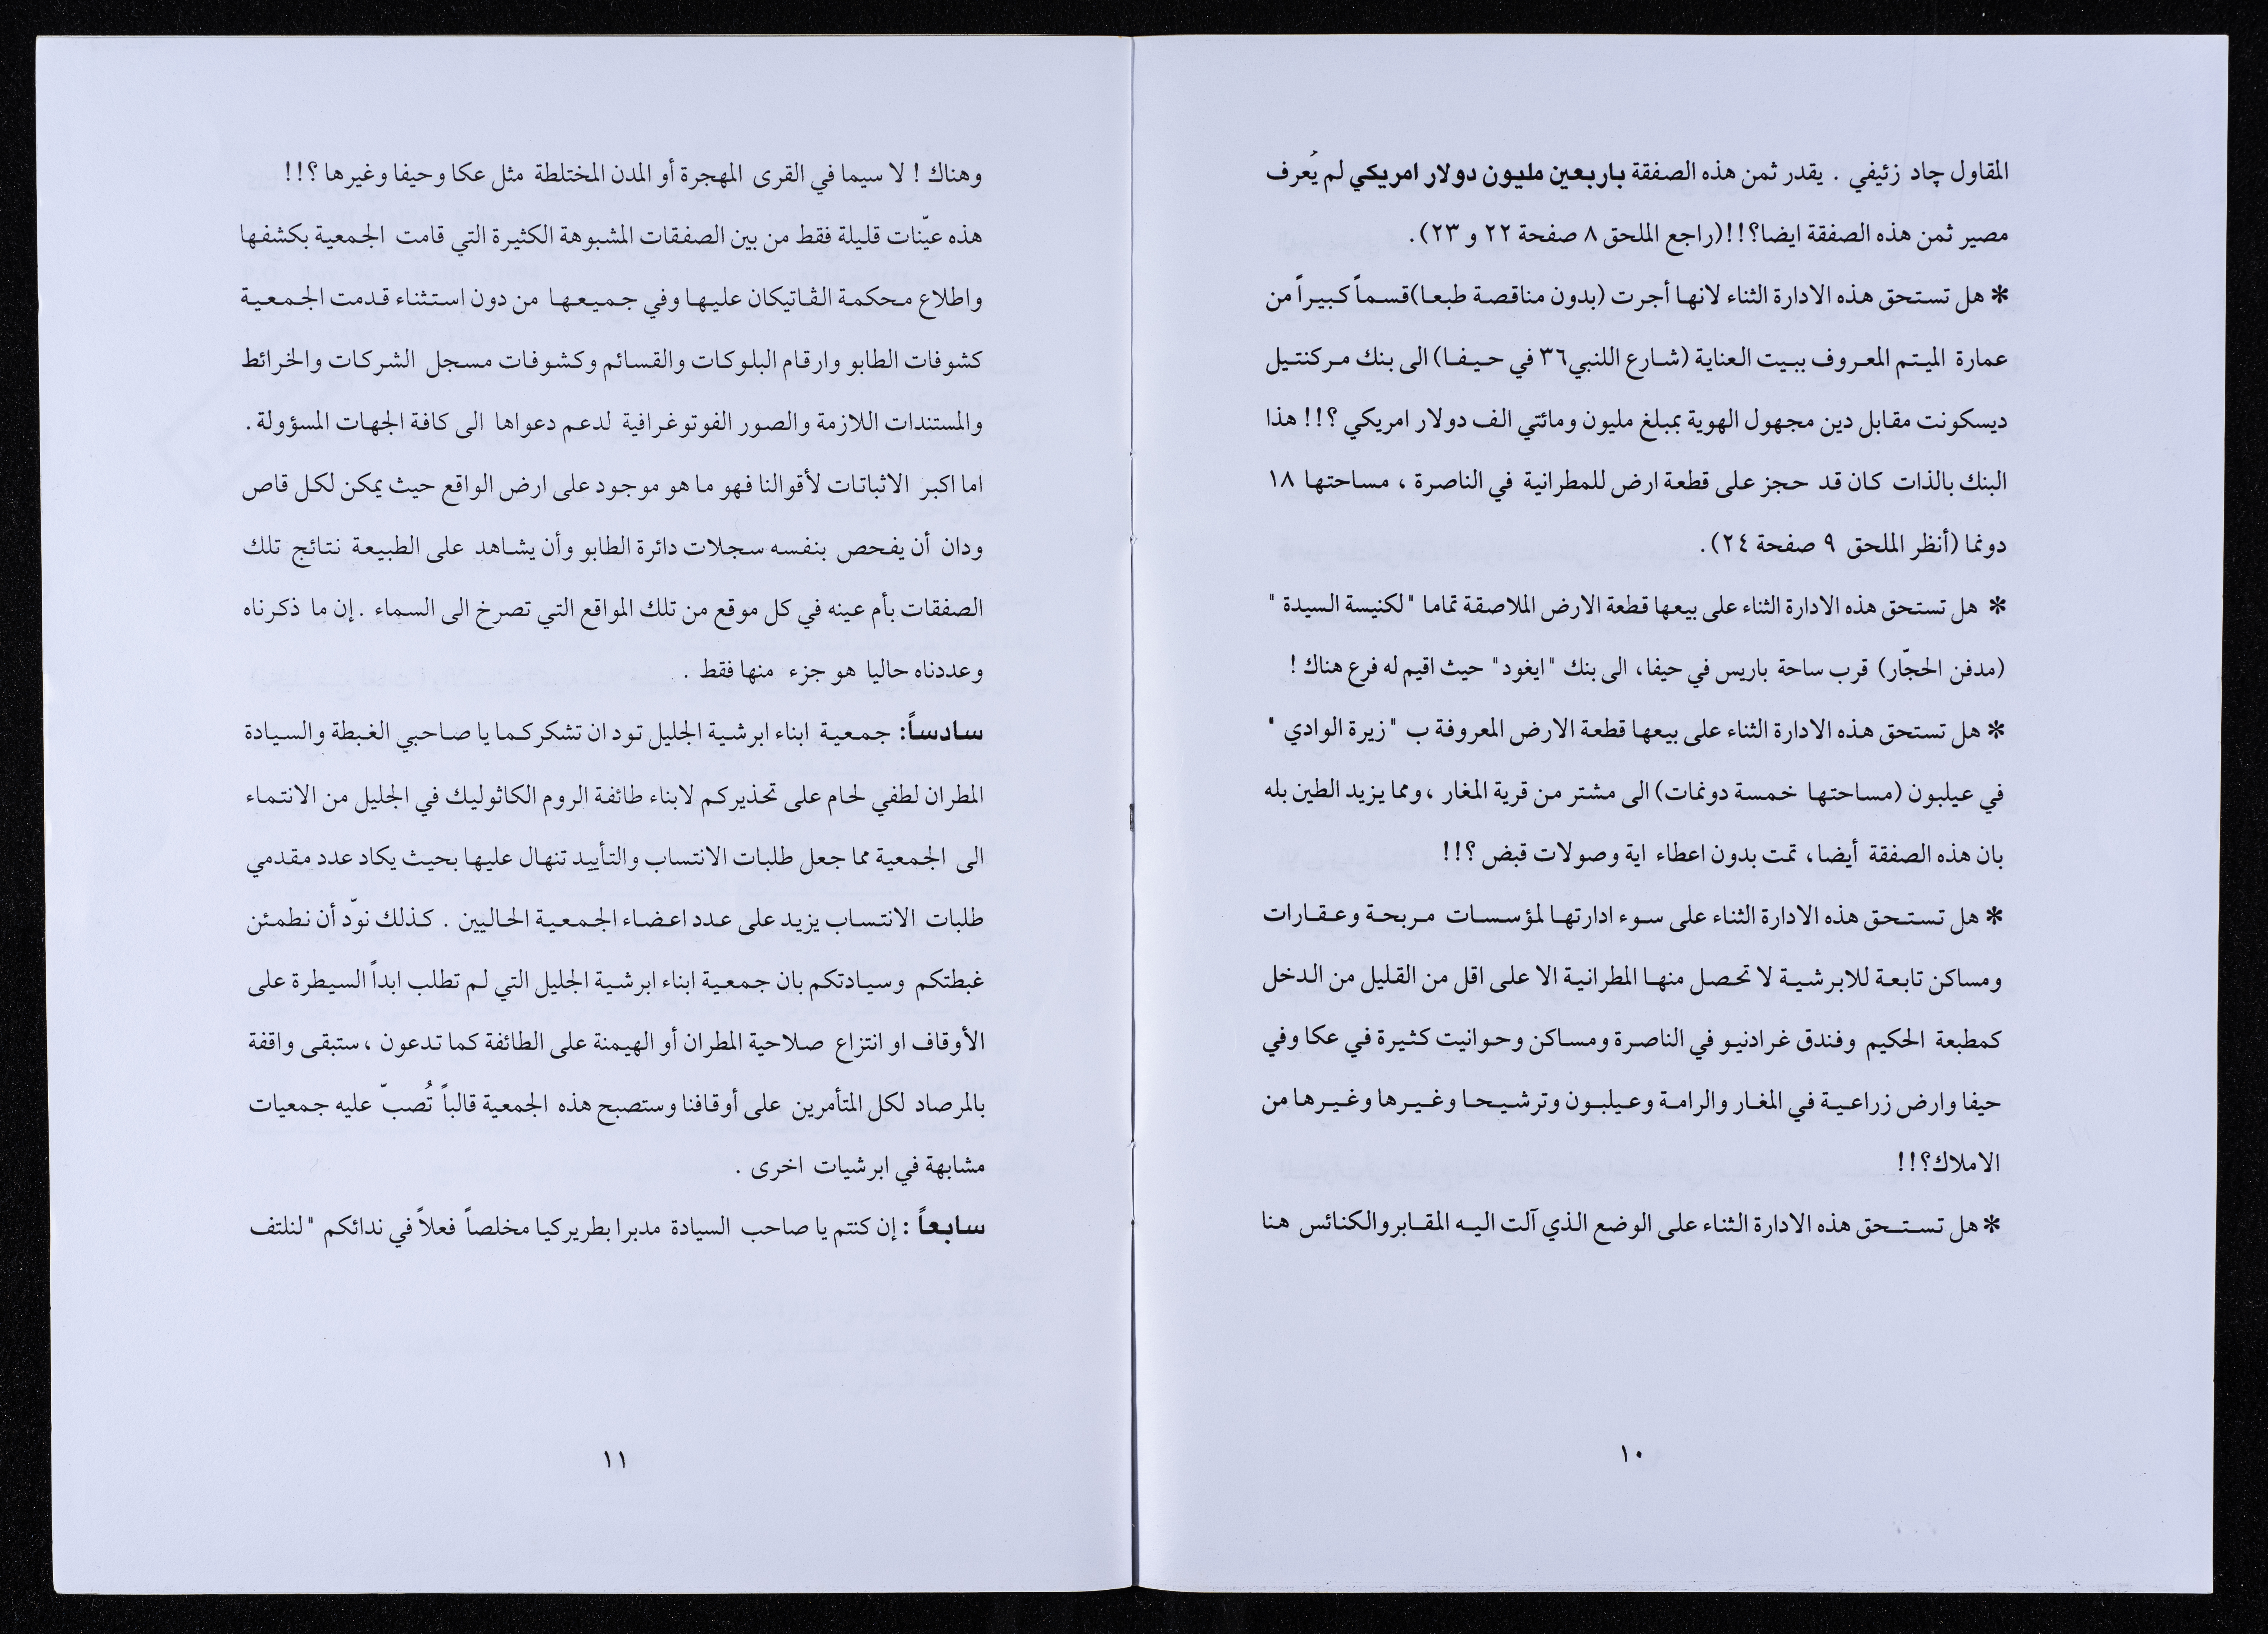 المقاول چاد زئيفي . يقدر ثمن هذه الصفقة باربعين مليون دولار امريكي لم يُعرف
مصير ثمن هذه الصفقة ايضا؟!!(راجع الملحق ٨ صفحة ٢٢ و ٢٣).
* هل تستحق هذه الادارة الثناء لانها أجرت (بدون مناقصة طبعا)قسماً كبيراً من
عمارة الميتم المعروف ببيت العناية (شارع اللنبي٣٦ في حيفا) الى بنك مركنتيل
ديسكونت مقابل دين مجهول الهوية بمبلغ مليون ومائتي الف دولار امريكي ؟!! هذا
البنك بالذات كان قد حجز على قطعة ارض للمطرانية في الناصرة ، مساحتها ١٨
دونما (أنظر الملحق ٩ صفحة ٢٤).
* هل تستحق هذه الادارة الثناء على بيعها قطعة الارض الملاصقة تماما "لكنيسة السيدة "
(مدفن الحجّار) قرب ساحة باريس في حيفا، الى بنك "ايغود" حيث اقيم له فرع هناك !
* هل تستحق هذه الادارة الثناء على بيعها قطعة الارض المعروفة ب "زيرة الوادي "
في عيلبون (مساحتها خمسة دونمات) الى مشتر من قرية المغار ،ومما يزيد الطين بله
بان هذه الصفقة أيضا، تمت بدون اعطاء اية وصولات قبض ؟!!
* هل تستحق هذه الادارة الثناء على سوء ادارتها لمؤسسات مربحة وعقارات
ومساكن تابعة للابرشية لا تحصل منها المطرانية الا على اقل من القليل من الدخل
كمطبعة الحكيم وفندق غرادنيو في الناصرة ومساكن وحوانيت كثيرة في عكا وفي
حيفا وارض زراعية في المغار والرامة وعيلبون وترشيحا وغيرها وغيرها من
الاملاك؟!!
* هل تستحق هذه الادارة الثناء على الوضع الذي آلت اليه المقابر والكنائس هنا
١٠
وهناك ! لا سيما في القرى المهجرة أو المدن المختلطة مثل عكا وحيفا وغيرها ؟!!
هذه عيّنات قليلة فقط من بين الصفقات المشبوهة الكثيرة التي قامت الجمعية بكشفها
واطلاع محكمة الڤاتيكان عليها وفي جميعها من دون استثناء قدمت الجمعية
كشوفات الطابو وارقام البلوكات والقسائم وكشوفات مسجل الشركات والخرائط
والمستندات اللازمة والصور الفوتوغرافية لدعم دعواها الى كافة الجهات المسؤولة .
اما اكبر الاثباتات لأقوالنا فهو ما هو موجود على ارض الواقع حيث يمكن لكل قاص
ودان أن يفحص بنفسه سجلات دائرة الطابو وأن يشاهد على الطبيعة نتائج تلك
الصفقات بأم عينه في كل موقع من تلك المواقع التي تصرخ الى السماء . إن ما ذكرناه
وعددناه حاليا هو جزء منها فقط .
سادساً: جمعية ابناء ابرشية الجليل تود ان تشكركما يا صاحبي الغبطة والسيادة
المطران لطفي لحام على تحذيركم لابناء طائفة الروم الكاثوليك في الجليل من الانتماء
الى الجمعية مما جعل طلبات الانتساب والتأييد تنهال عليها بحيث يكاد عدد مقدمي
طلبات الانتساب يزيد على عدد اعضاء الجمعية الحاليين . كذلك نودّ أن نطمئن
غبطتكم وسيادتكم بان جمعية ابناء ابرشية الجليل التي لم تطلب ابداً السيطرة على
الأوقاف او انتزاع صلاحية المطران أو الهيمنة على الطائفة كما تدعون ، ستبقى واقفة
بالمرصاد لكل المتأمرين على أوقافنا وستصبح هذه الجمعية قالباً تُصبّ عليه جمعيات
مشابهة في ابرشيات اخرى .
سابعاً : إن كنتم يا صاحب السيادة مدبرا بطريركيا مخلصاً فعلاً في ندائكم "لنلتف
١١